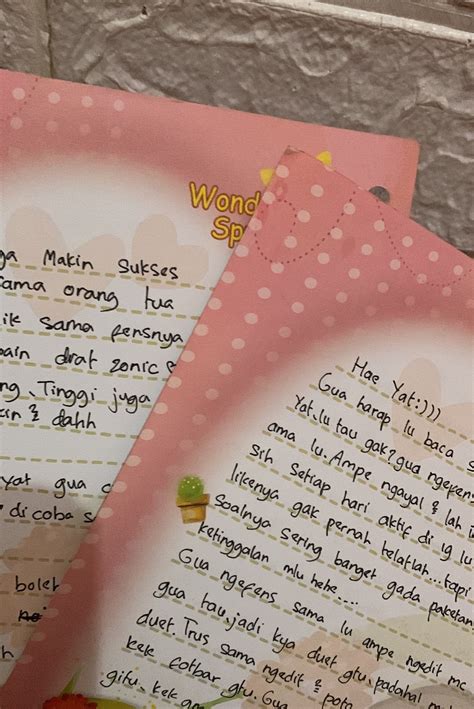 Wond
Sp
ga Makin Sukses
sama orang tua
ik sama fensnya
ain drat zonic
ng. Tinggi juga
& dahh
yat gua c
di coba s
boleh
Hae Yat:)))
Gua harap lu baca s
Yat, lu tau gak? gua ngefens
ama lu. Ampe ngayal & lah
sih setiap hari aktif di ig lu
likenya gak pernah telatlah... tapi
Soalnya sering banget gada paketan
ketinggalan mlu hehe....
Gua ngefens sama lu ampe ngedit mc
gua tau, jadi kya duet gtu, padahal
duet. Trus sama ngedit & poto
kek cotbar gtu. Gua
gitu. kek gm